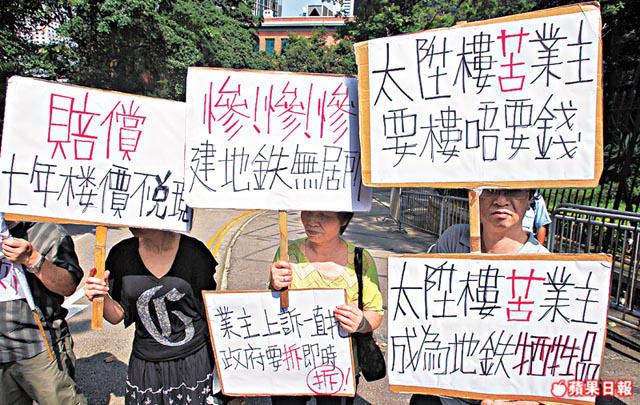 賠償
七年楼價不兌現
慘!慘!慘
建地鉄無居所
太陞樓苦業主
要樓唔要錢
業主上訴一直拖
政府要拆即時
拆!
太陞樓苦業主
成為地鉄牺牲品
蘋果日報